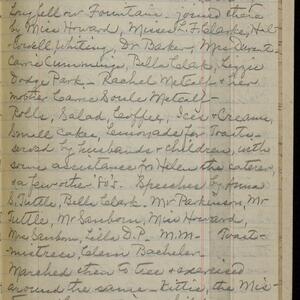 Longfellow Fountain. joined there
by Miss Howard, Misses L. F. Clarke, Hal-
lowell, Whiting, Dr Barker, Mrs
Carrie Cummings, Bella Clark, Lizzie
Dodge Park - Rachel Metcalf & her
mother Carrie Soule Metcalf -
Rolls, Salad, Coffee, Ices & Creams,
Small Cakes, Lemonade for Toasts -
served by husbands & children, with
some assistance for Helen the caterer,
& a few other '80's. Speeches by Anna
S. Tuttle, Bella Clark, Mr Parkinson, Mr
Tuttle, Mr Sanborn, Miss Howard,
Mrs Sanborn, Lilla D.P. M.M- Toast-
mistress, Ellen Bachelor-
Marched then to tree & exercised
around the same - Kittie, the Mis-